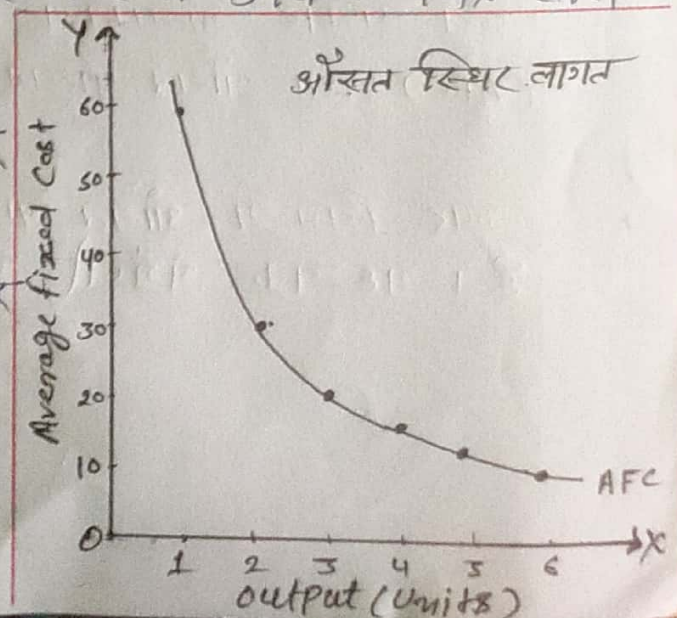 Y
औसत स्थिर लागत
Average fixed Cost
60
50
40
30
20
10
0
AFC
X
1 2 3 4 5 6
output (Units)